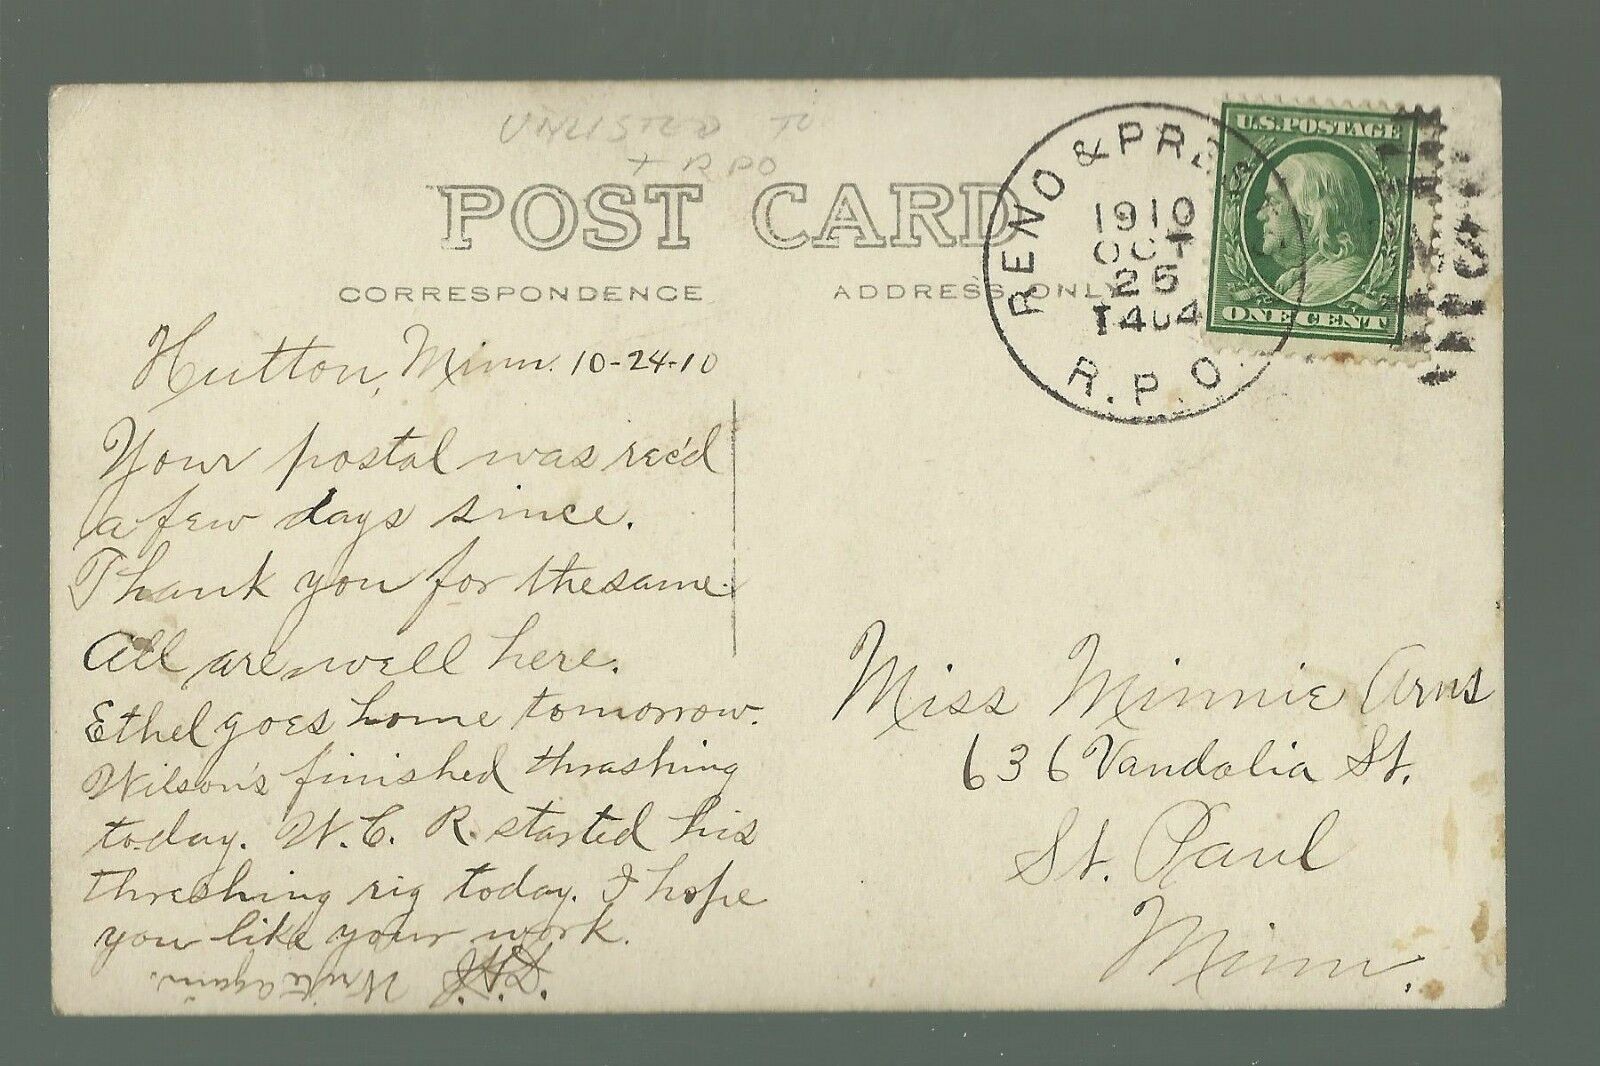 UNLISTED TO
+ RPO
POST CARD
CORRESPONDENCE
ADDRESS ONLY
RENO & PRES
1910
OCT
25
T404
R.P.O.
U.S. POSTAGE
ONE CENT
Hutton, Minn. 10-24-10
Your postal was rec'd
a few days since.
Thank you for the same.
All are well here.
Ethel goes home tomorrow.
Wilson's finished thrashing
today. W. C. R. started his
threshing rig today. I hope
you like your work.
Write again.
Miss Minnie Arns
636 Vandalia St.
St. Paul
Minn.